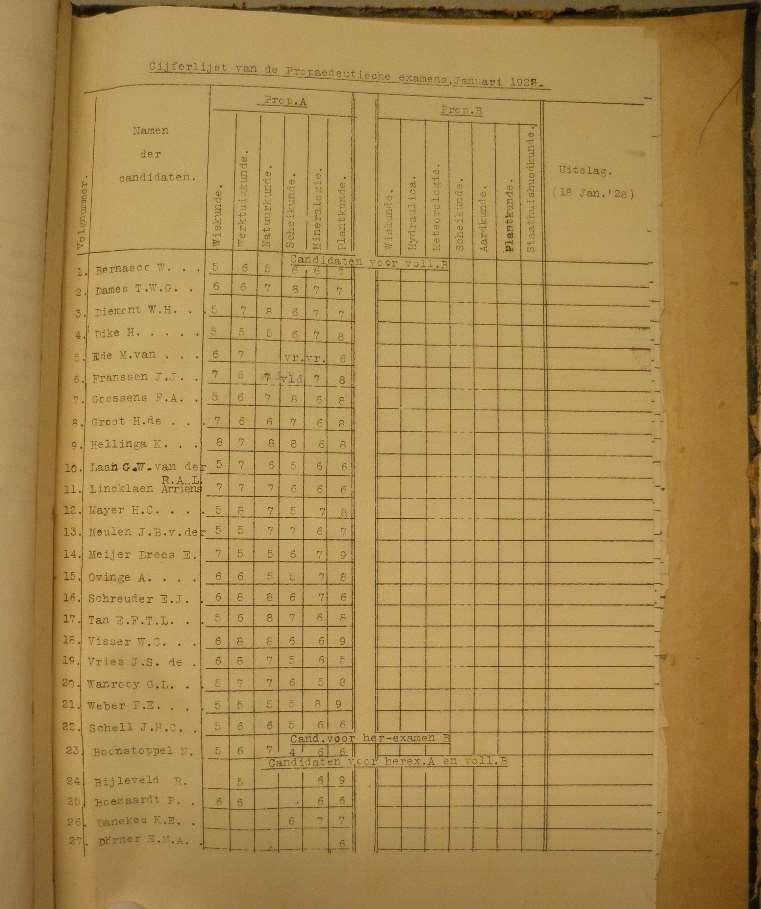 Cijferlijst van de Propaedeutische examens, Januari 1928.
Prop.A
Prop.B
Volgnummer.
Namen
der
candidaten.
Wiskunde.
Werktuigkunde.
Natuurkunde.
Scheikunde.
Mineralogie.
Plantkunde.
Wiskunde.
Hydraulica.
Meteorologie.
Scheikunde.
Aardkunde.
Plantkunde.
Staathuishoudkunde.
Uitslag.
(18 Jan.'28)
Candidaten voor voll.B
1. Bernasco W. . . 5 6 5 6 6 7
2. Dames T.W.G. . 6 6 7 8 7 7
3. Diemont W.H. . 5 7 8 6 7 7
4. Dike H. . . . . 5 5 5 6 7 8
5. Ede M.van . . . 6 7 vr. vr. 6
6. Franssen J.J. . 7 6 7 vld 7 8
7. Goossens F.A. . 5 6 7 8 6 8
8. Groot H.de . . 7 6 6 7 6 8
9. Hellinga K. . . 8 7 8 8 6 8
10. Laan G.W.van der 5 7 6 5 6 6
11. Lincklaen R.A.L. Arriens 7 7 7 6 6 6
12. Mayer H.C. . . . 5 8 7 5 7 8
13. Meulen J.B.v.der 5 5 7 7 6 7
14. Meijer Drees E. 7 5 5 6 7 9
15. Owinge A. . . . 6 6 5 5 7 8
16. Schreuder E.J. . 6 8 8 6 7 6
17. Tan E.F.T.L. . . 5 6 8 7 6 8
18. Visser W.C. . . 6 8 8 6 6 9
19. Vries J.S. de . 6 6 7 5 6 5
20. Wanrooy G.L. . . 5 7 7 6 5 8
21. Weber P.E. . . . 5 5 5 5 8 9
22. Schell J.H.C. . 5 6 6 5 6 6
Cand.voor her-examen B
23. Boonstoppel N. 5 6 7 4 6 6
Candidaten voor herex.A en voll.B
24. Bijleveld R. 5 6 9
25. Boezaardt P. . 6 6 6 6
26. Danekou K.E. . . 6 7 7
27. Dörner E.M.A. . 6